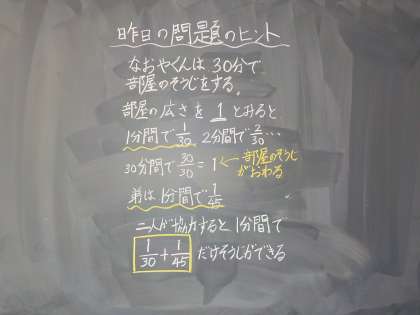 昨日の問題のヒント
なおやくんは30分で
部屋のそうじをする。
部屋の広さを1とみると
1分間で1/30 2分間で2/30…
30分間で30/30=1←部屋のそうじ
がおわる
弟は1分間で1/45
二人が協力すると1分間で
1/30+1/45だけそうじができる